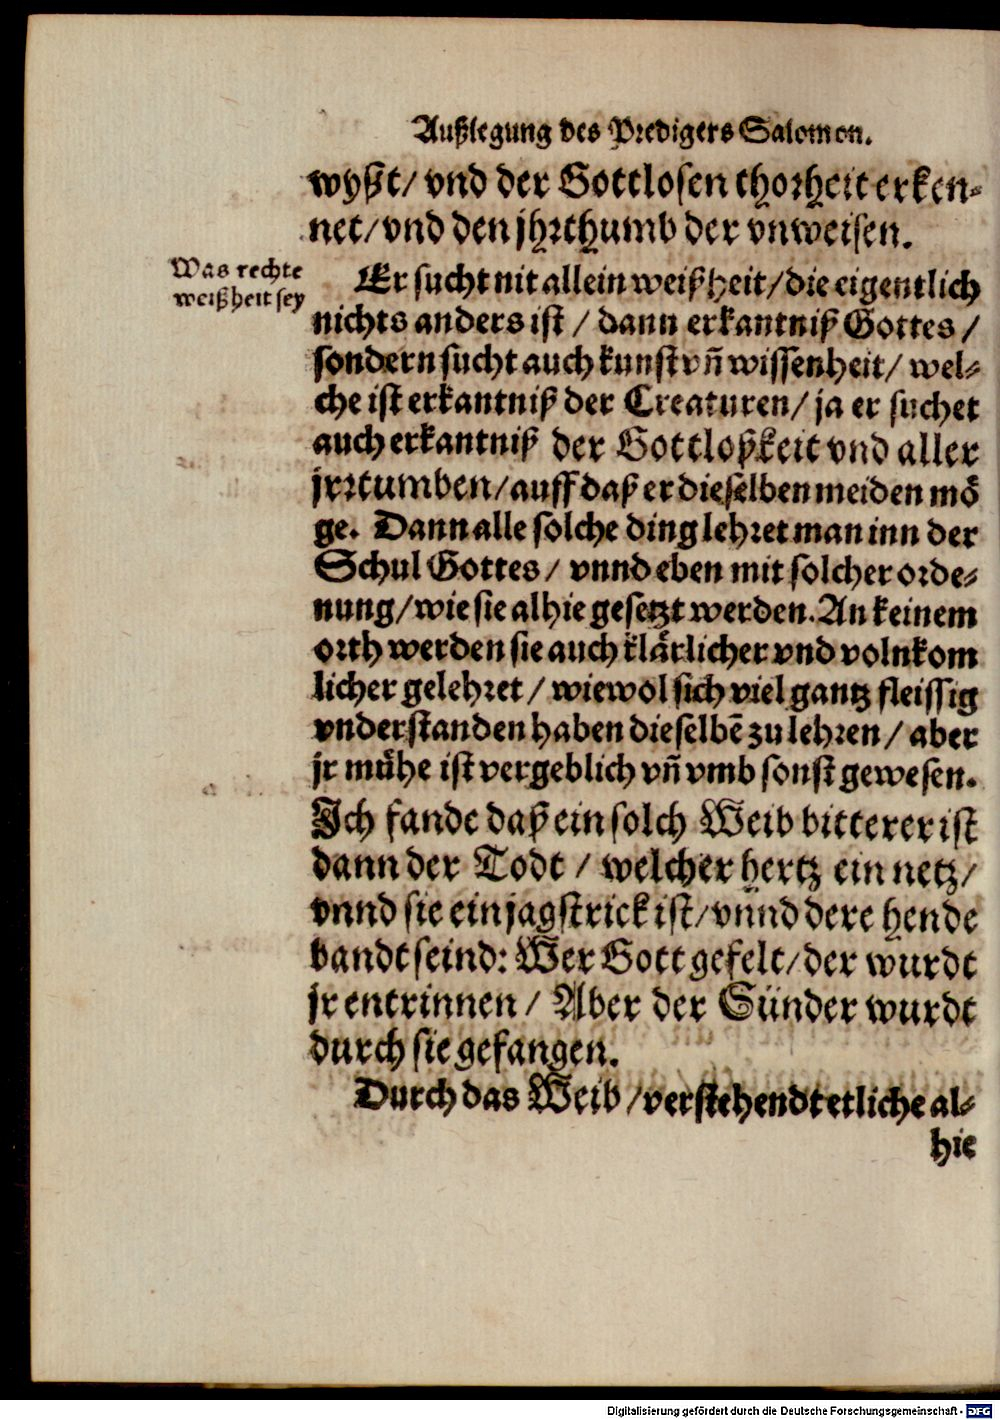 Außlegung des Predigers Salomon.
wyßt/ vnd der Gottlosen thorheit erken-
net/ vnd den jhrthumb der vnweisen.
Was rechte
weißheit sey
Er sucht nit allein weißheit/ die eigentlich
nichts anders ist / dann erkantniß Gottes /
sondern sucht auch kunst vn̄ wissenheit/ wel-
che ist erkantniß der Creaturen/ ja er suchet
auch erkantniß der Gottloßkeit vnd aller
jrrtumben/ auff daß er dieselben meiden mö
ge. Dann alle solche ding lehret man inn der
Schul Gottes / vnnd eben mit solcher orde-
nung/ wie sie alhie gesetzt werden. An keinem
orth werden sie auch klärlicher vnd volnkom
licher gelehret / wiewol sich viel gantz fleissig
vnderstanden haben dieselbē zu lehren / aber
jr mühe ist vergeblich vn̄ vmb sonst gewesen.
Ich fande daß ein solch Weib bitterer ist
dann der Todt / welcher hertz ein netz/
vnnd sie ein jagstrick ist/ vnnd dere hende
bandt seind: Wer Gott gefelt/ der wurdt
jr entrinnen / Aber der Sünder wurdt
durch sie gefangen.
Durch das Weib / verstehendt etliche al-
hie
Digitalisierung gefördert durch die Deutsche Forschungsgemeinschaft - DFG